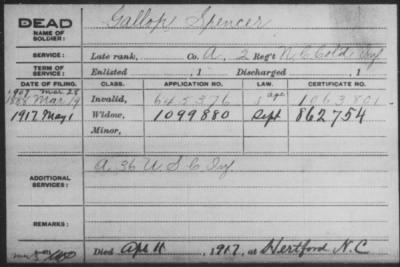 DEAD Gallop Spencer
NAME OF SOLDIER:
SERVICE: Late rank, Co. A, 2 Reg't N. C. Cold. Inf
TERM OF SERVICE: Enlisted , 1 Discharged , 1
DATE OF FILING. CLASS. APPLICATION NO. LAW. CERTIFICATE NO.
1907 Mar 28
1888 Mar 19 Invalid, 645376 age 1063801
1917 May 1 Widow, 1099880 Sept 862754
Minor,
ADDITIONAL SERVICES: A 36 U S C Inf.
REMARKS:
Died Apr 11, 1917, at Hertford N. C